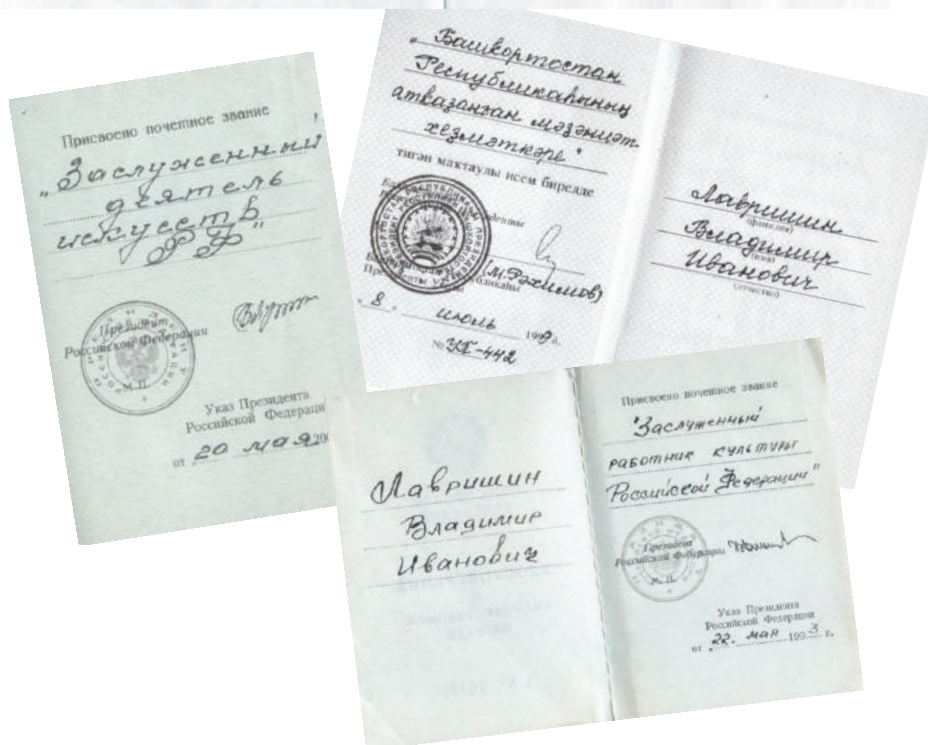 Присвоено почетное звание
"Заслуженный
деятель
искусств
РФ"
Президент
Российской Федерации
М. П.
Указ Президента
Российской Федерации
от 20 мая 200
"Башкортостан
Республикаһының
атказанған мәҙәниәт
хеҙмәткәре"
тигән мактаулы исем бирелде
(М.Рәхимов)
" 8 " июль 1999 г.
№ УП-442
Лавришин
(фамилия)
Владимир
(имя)
Иванович
(отчество)
Лавришин
Владимир
Иванович
Присвоено почетное звание
"Заслуженный
работник культуры
Российской Федерации"
Президент
Российской Федерации
М. П.
Указ Президента
Российской Федерации
от "22. мая 1993 г.